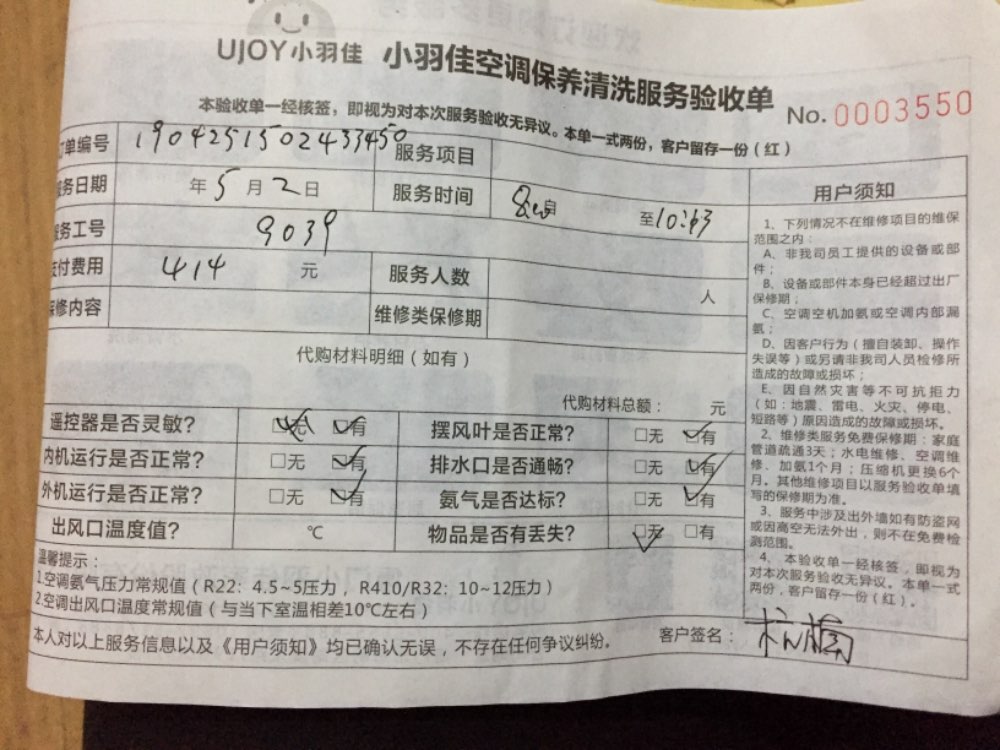 UJOY小羽佳 小羽佳空调保养清洗服务验收单
No. 0003550
本验收单一经核签，即视为对本次服务验收无异议。本单一式两份，客户留存一份（红）
订单编号 19042515024333450 服务项目
服务日期 年5月2日 服务时间 自 至10:43
服务工号 9039
支付费用 414 元 服务人数 人
保修内容 维修类保修期
代购材料明细（如有）
代购材料总额： 元
遥控器是否灵敏? ☑无 ☑有 摆风叶是否正常? □无 ☑有
内机运行是否正常? □无 ☑有 排水口是否通畅? □无 ☑有
外机运行是否正常? □无 ☑有 氨气是否达标? □无 ☑有
出风口温度值? ℃ 物品是否有丢失? ☑无 □有
温馨提示：
1.空调氨气压力常规值（R22：4.5~5压力， R410/R32：10~12压力）
2.空调出风口温度常规值（与当下室温相差10℃左右）
本人对以上服务信息以及《用户须知》均已确认无误，不存在任何争议纠纷。
客户签名：
用户须知
1、下列情况不在维修项目的维保
范围之内：
A、非我司员工提供的设备或部
件；
B、设备或部件本身已经超过出厂
保修期；
C、空调空机加氨或空调内部漏
氨；
D、因客户行为（擅自装卸、操作
失误等）或另请非我司人员检修所
造成的故障或损坏；
E、因自然灾害等不可抗拒力
（如：地震、雷电、火灾、停电、
短路等）原因造成的故障或损坏。
2、维修类服务免费保修期：家庭
管道疏通3天；水电维修、空调维
修、加氨1个月；压缩机更换6个
月。其他维修项目以服务验收单填
写的保修期为准。
3、服务中涉及出外墙如有防盗网
或因高空无法外出，则不在免费检
测范围。
4、本验收单一经核签，即视为
对本次服务验收无异议。本单一式
两份，客户留存一份（红）。